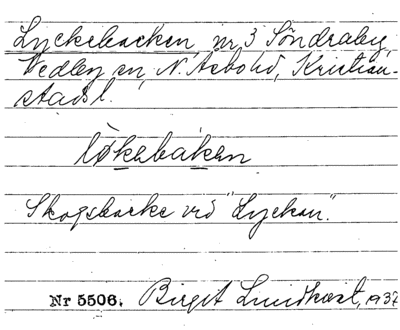 Lyckebacken, nr 3 Söndraby,
Vedby sn, N. Åsbo hd, Kristian-
stads l.
løkebaken
Skogsbacke vid "Lyckan".
Nr 5506. Birgit Lundkvist, 1937